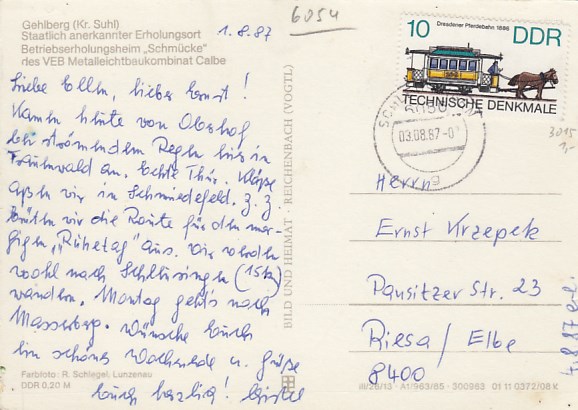 Gehlberg (Kr. Suhl)
Staatlich anerkannter Erholungsort
Betriebserholungsheim „Schmücke"
des VEB Metalleichtbaukombinat Calbe
1.8.87
6054
Liebe Ellen, lieber Ernst!
Kamen heute von Oberhof
bei strömendem Regen hier in
Frauenwald an. Echte Thür. Klöße
aßen wir in Schmiedefeld. Z. Z.
brüten wir die Route für den mor-
gigen „Ruhetag" aus. Wir werden
wohl nach Schleusingen (15km)
wandern. Montag gehts nach
Masserberg. Wünsche Euch
ein schönes Wochenende u. grüße
Euch herzlich! Christel
Farbfoto: R. Schlegel, Lunzenau
DDR 0,20 M
BILD UND HEIMAT · REICHENBACH (VOGTL)
Dresdener Pferdebahn 1886
10 DDR
TECHNISCHE DENKMALE
03.08.87
3015
1,-
Herrn
Ernst Krzepek
Pausitzer Str. 23
Riesa / Elbe
8400
III/26/13 · A1/963/85 · 300963 01 11 0372/08 K